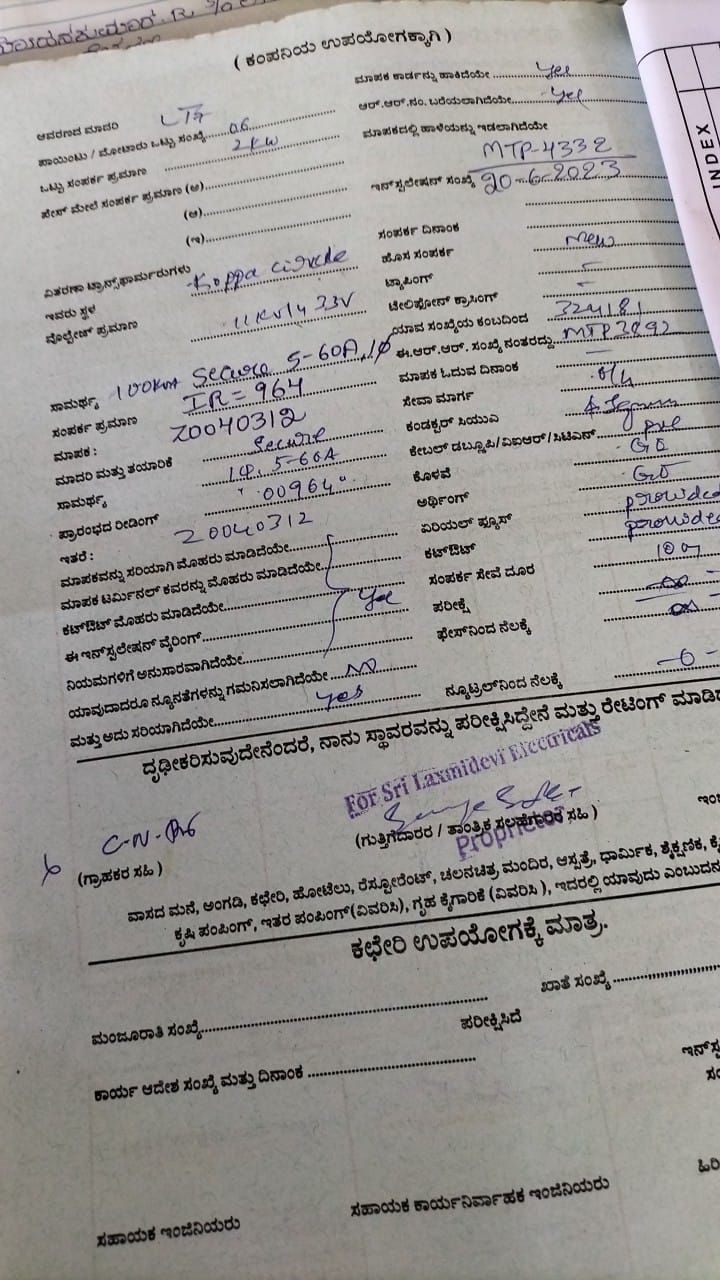 ( ಕಂಪನಿಯ ಉಪಯೋಗಕ್ಕಾಗಿ )
ಆವರಣದ ಮಾದರಿ
ಪಾಯಿಂಟು / ಮೋಟಾರು ಒಟ್ಟು ಸಂಖ್ಯೆ 06
ಒಟ್ಟು ಸಂಪರ್ಕ ಪ್ರಮಾಣ 2KW
ಪೇಸ್ ಮೇಲೆ ಸಂಪರ್ಕ ಪ್ರಮಾಣ (ಅ)
(ಆ)
(ಇ)
ವಿತರಣಾ ಟ್ರಾನ್ಸ್‌ಫಾರ್ಮರುಗಳು
ಇವರು ಸ್ಥಳ Koppa circle
ವೋಲ್ಟೇಜ್ ಪ್ರಮಾಣ 11KV/433V
ಸಾಮರ್ಥ್ಯ 100KVA Secure 5-60A, 1φ
ಸಂಪರ್ಕ ಪ್ರಮಾಣ IR = 964
ಮಾಪಕ : Z0040312
ಮಾದರಿ ಮತ್ತು ತಯಾರಿಕೆ Secure
ಸಾಮರ್ಥ್ಯ 1φ, 5-60A
ಪ್ರಾರಂಭದ ರೀಡಿಂಗ್ 00964
ಇತರೆ : Z0040312
ಮಾಪಕವನ್ನು ಸರಿಯಾಗಿ ಮೊಹರು ಮಾಡಿದೆಯೇ
ಮಾಪಕ ಟರ್ಮಿನಲ್ ಕವರನ್ನು ಮೊಹರು ಮಾಡಿದೆಯೇ
ಕಟ್‌ಔಟ್ ಮೊಹರು ಮಾಡಿದೆಯೇ
ಈ ಇನ್‌ಸ್ಟಲೇಷನ್ ವೈರಿಂಗ್ Yes
ನಿಯಮಗಳಿಗೆ ಅನುಸಾರವಾಗಿದೆಯೇ
ಯಾವುದಾದರೂ ನ್ಯೂನತೆಗಳನ್ನು ಗಮನಿಸಲಾಗಿದೆಯೇ NO
ಮತ್ತು ಅದು ಸರಿಯಾಗಿದೆಯೇ yes
ಮಾಪಕ ಕಾರ್ಡನ್ನು ಹಾಕಿದೆಯೇ Yes
ಆರ್.ಆರ್.ನಂ. ಬರೆಯಲಾಗಿದೆಯೇ Yes
ಮಾಪಕದಲ್ಲಿ ಹಾಳೆಯನ್ನು ಇಡಲಾಗಿದೆಯೇ
MTP-4332
ಇನ್‌ಸ್ಟಲೇಷನ್ ಸಂಖ್ಯೆ 20-6-2023
ಸಂಪರ್ಕ ದಿನಾಂಕ
ಹೊಸ ಸಂಪರ್ಕ New
ಟ್ಯಾಪಿಂಗ್ -
ಟೆಲಿಫೋನ್ ಕ್ರಾಸಿಂಗ್ -
ಯಾವ ಸಂಖ್ಯೆಯ ಕಂಬದಿಂದ 324181
ಈ.ಆರ್.ಆರ್. ಸಂಖ್ಯೆ ನಂತರದ್ದು MTP3892
ಮಾಪಕ ಓದುವ ದಿನಾಂಕ -
ಸೇವಾ ಮಾರ್ಗ O/H
ಕಂಡಕ್ಟರ್ ಸಿಯುವಿ
ಕೇಬಲ್ ಡಬ್ಲೂಪಿ/ವಿಐಆರ್/ಸಿಟಿಎಸ್ pvc
ಕೊಳವೆ GI
ಅರ್ಥಿಂಗ್ GI
ಏರಿಯಲ್ ಫ್ಯೂಸ್ provided
ಕಟ್‌ಔಟ್ provided
ಸಂಪರ್ಕ ಸೇವೆ ದೂರ
ಪರೀಕ್ಷೆ
ಫೇಸ್‌ನಿಂದ ನೆಲಕ್ಕೆ
ನ್ಯೂಟ್ರಲ್‌ನಿಂದ ನೆಲಕ್ಕೆ -0-
INDEX
ದೃಢೀಕರಿಸುವುದೇನೆಂದರೆ, ನಾನು ಸ್ಥಾವರವನ್ನು ಪರೀಕ್ಷಿಸಿದ್ದೇನೆ ಮತ್ತು ರೇಟಿಂಗ್
For Sri Laxmidevi Electricals
Proprietor
(ಗ್ರಾಹಕರ ಸಹಿ )
(ಗುತ್ತಿಗೆದಾರರ / ತಾಂತ್ರಿಕ ಸಲಹೆಗಾರರ ಸಹಿ )
ವಾಸದ ಮನೆ, ಅಂಗಡಿ, ಕಛೇರಿ, ಹೋಟೆಲು, ರೆಸ್ಟೋರೆಂಟ್, ಚಲನಚಿತ್ರ ಮಂದಿರ, ಆಸ್ಪತ್ರೆ, ಧಾರ್ಮಿಕ, ಶೈಕ್ಷಣಿಕ,
ಕೃಷಿ ಪಂಪಿಂಗ್, ಇತರ ಪಂಪಿಂಗ್(ವಿವರಿಸಿ), ಗೃಹ ಕೈಗಾರಿಕೆ (ವಿವರಿಸಿ ), ಇದರಲ್ಲಿ ಯಾವುದು
ಕಛೇರಿ ಉಪಯೋಗಕ್ಕೆ ಮಾತ್ರ.
ಮಂಜೂರಾತಿ ಸಂಖ್ಯೆ
ಖಾತೆ ಸಂಖ್ಯೆ
ಪರೀಕ್ಷಿಸಿದೆ
ಕಾರ್ಯ ಆದೇಶ ಸಂಖ್ಯೆ ಮತ್ತು ದಿನಾಂಕ
ಸಹಾಯಕ ಇಂಜಿನಿಯರು
ಸಹಾಯಕ ಕಾರ್ಯನಿರ್ವಾಹಕ ಇಂಜಿನಿಯರು